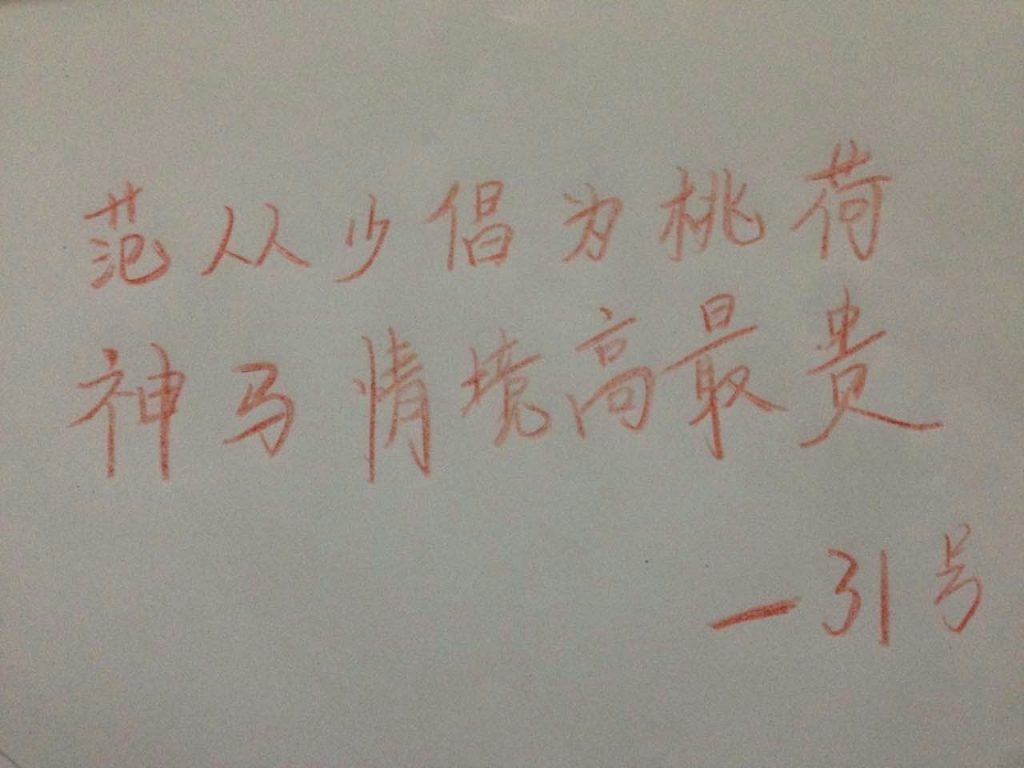 范从少倡为桃荷
神马情境高最贵
—31号